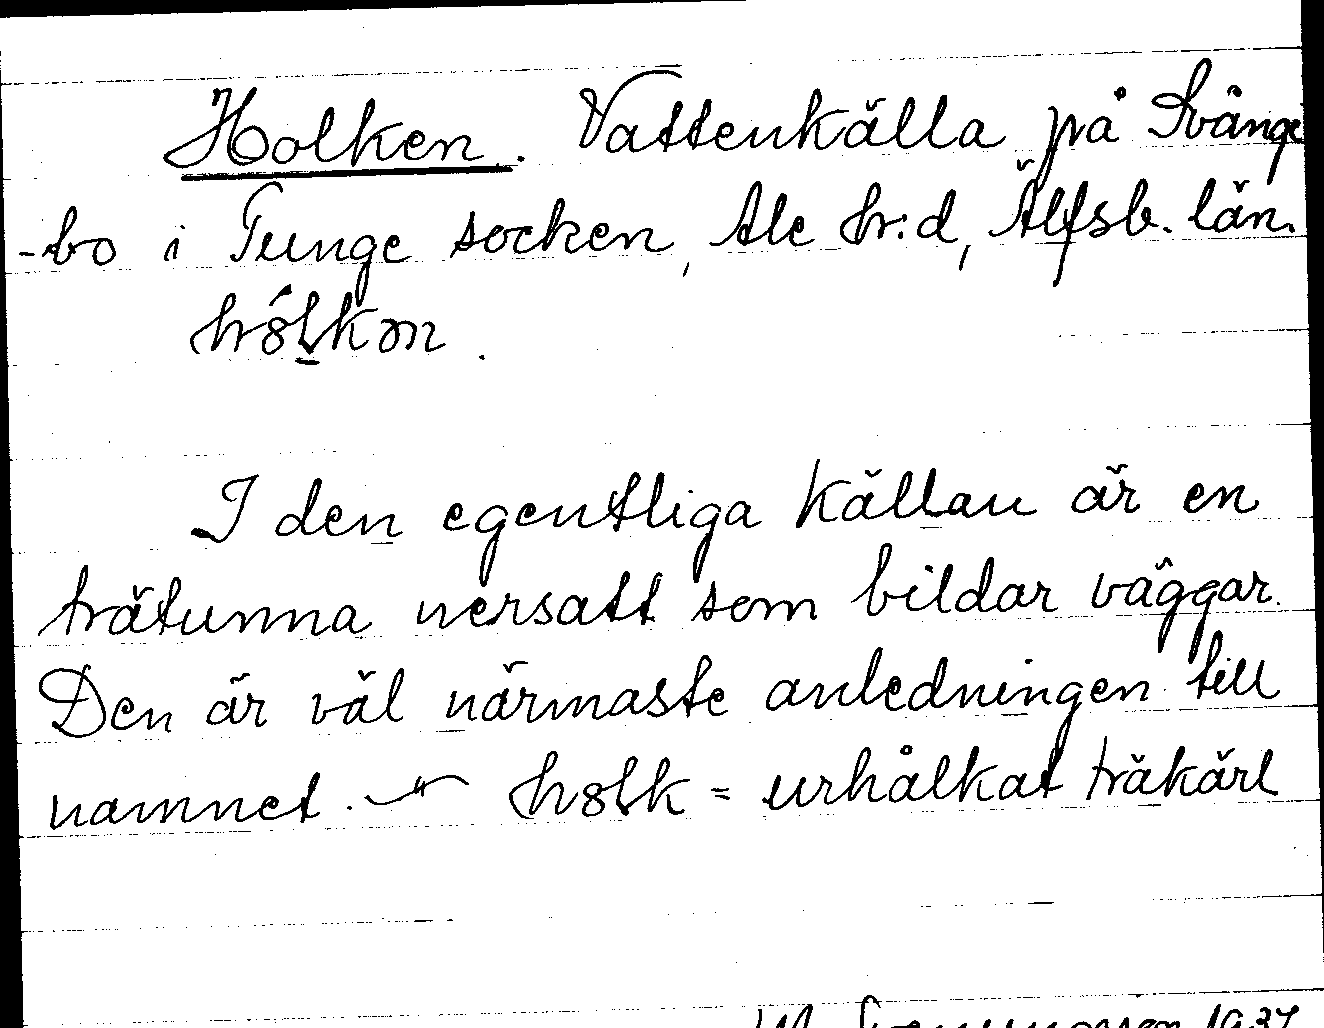 Holken. Vattenkälla på Svänge
-bo i Tunge socken, Ale hr:d, Älfsb. län.
hólkən.
I den egentliga källan är en
trätunna nersatt som bildar väggar.
Den är väl närmaste anledningen till
namnet. — holk = urhålkat träkärl
1937